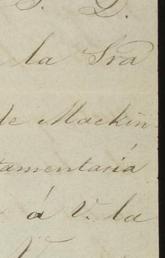 S. D.
la Sra
de Mackin
tamentaria
á V. la
V